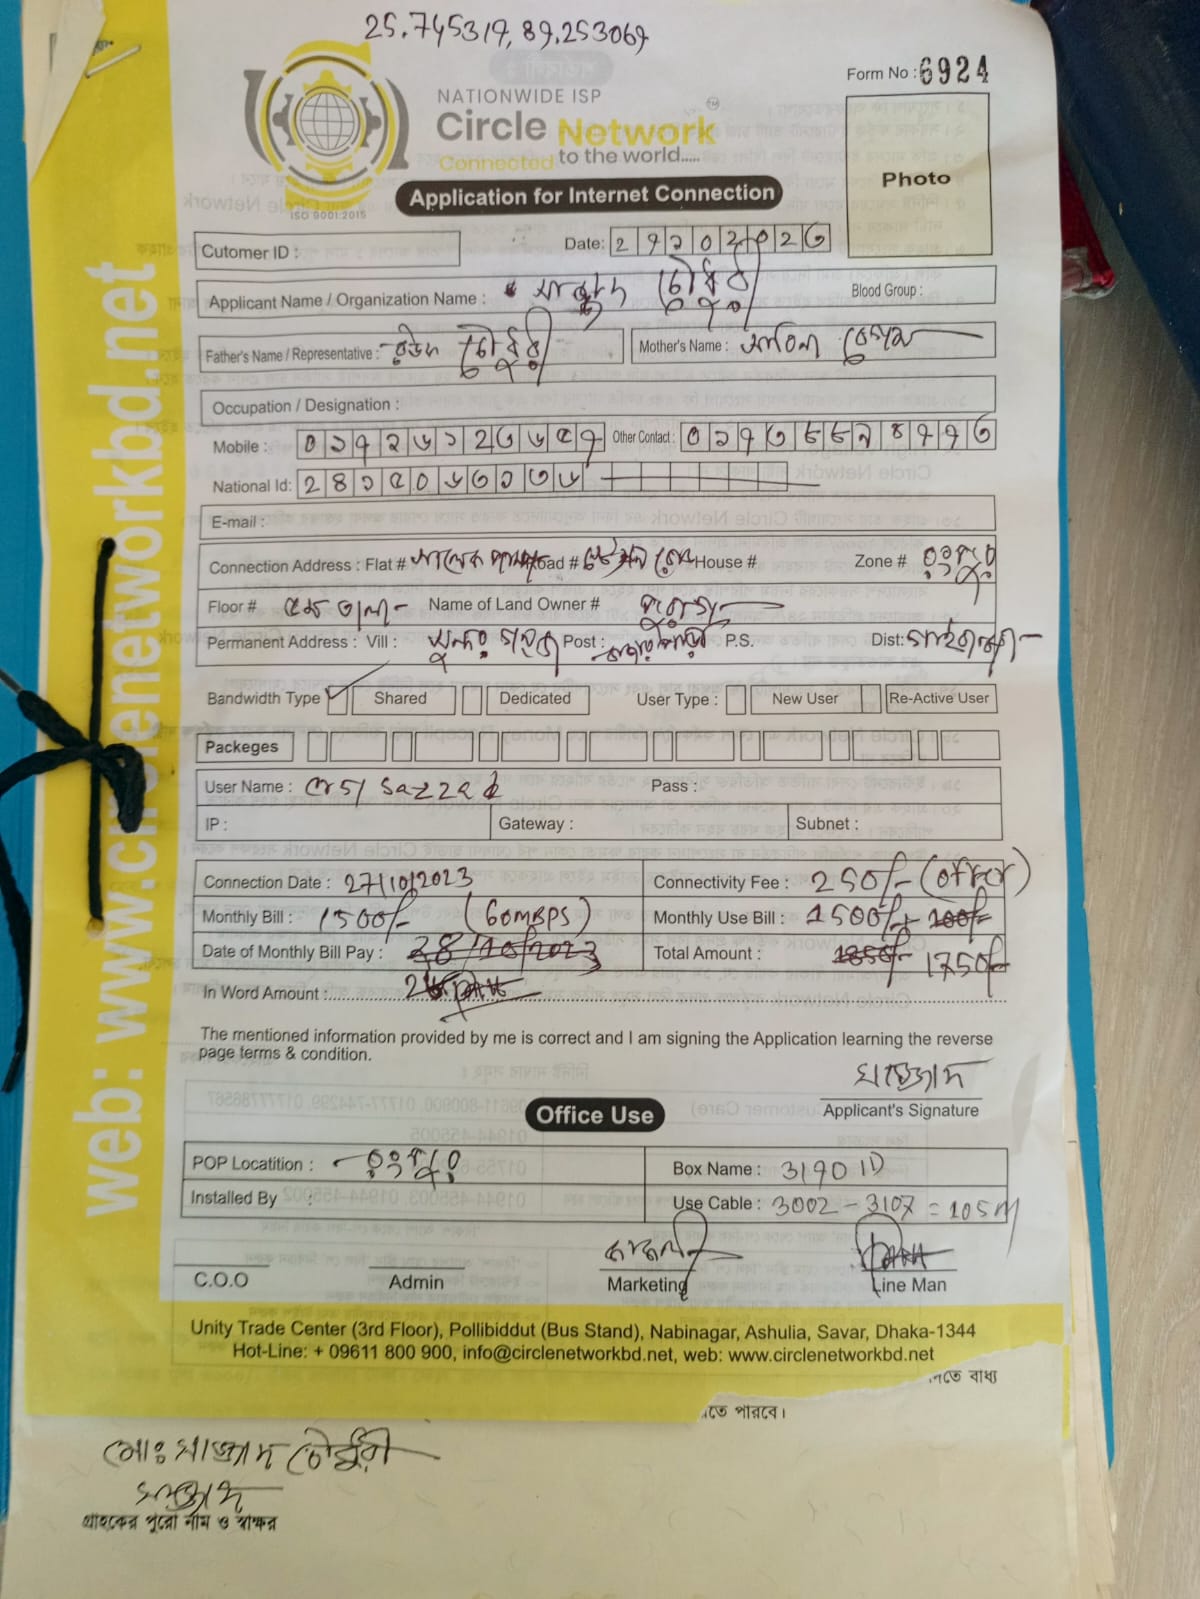 25.745317, 89.253069
Form No : 6924
NATIONWIDE ISP
Circle Network
Connected to the world.....
ISO 9001:2015
Application for Internet Connection
Photo
Cutomer ID :
Date: ২৭১০২০২৩
Applicant Name / Organization Name : চৌধুরী
Blood Group :
Father's Name / Representative : চৌধুরী
Mother's Name : বেগম
Occupation / Designation :
Mobile : ০১৭২৬১২৩৬৫৭
Other Contact : ০১৭৩৮৮৯৪৭৭৩
National Id: ২৪১৫০৬৩১৩৬
E-mail :
Connection Address : Flat # Road # House # Zone # রংপুর
Floor # ৫ম তলা Name of Land Owner #
Permanent Address : Vill : Post : P.S. Dist: গাইবান্ধা
Bandwidth Type Shared Dedicated User Type : New User Re-Active User
Packeges
User Name : Sazzad Pass :
IP : Gateway : Subnet :
Connection Date : 27/10/2023 Connectivity Fee : 250/- (offer)
Monthly Bill : 1500/- (60MBPS) Monthly Use Bill : 1500/- + 100/-
Date of Monthly Bill Pay : 28/10/2023 Total Amount : 1850/- 1750/-
In Word Amount :
The mentioned information provided by me is correct and I am signing the Application learning the reverse
page terms & condition.
সাজ্জাদ
Applicant's Signature
Office Use
POP Locatition : রংপুর Box Name : 3190 ID
Installed By : Use Cable : 3002 - 3107 = 105 M
C.O.O Admin Marketing Line Man
Unity Trade Center (3rd Floor), Pollibiddut (Bus Stand), Nabinagar, Ashulia, Savar, Dhaka-1344
Hot-Line: + 09611 800 900, info@circlenetworkbd.net, web: www.circlenetworkbd.net
web: www.circlenetworkbd.net
বাধ্য
পারবে।
মোঃ সাজ্জাদ চৌধুরী
সাজ্জাদ
গ্রাহকের পুরো নাম ও স্বাক্ষর